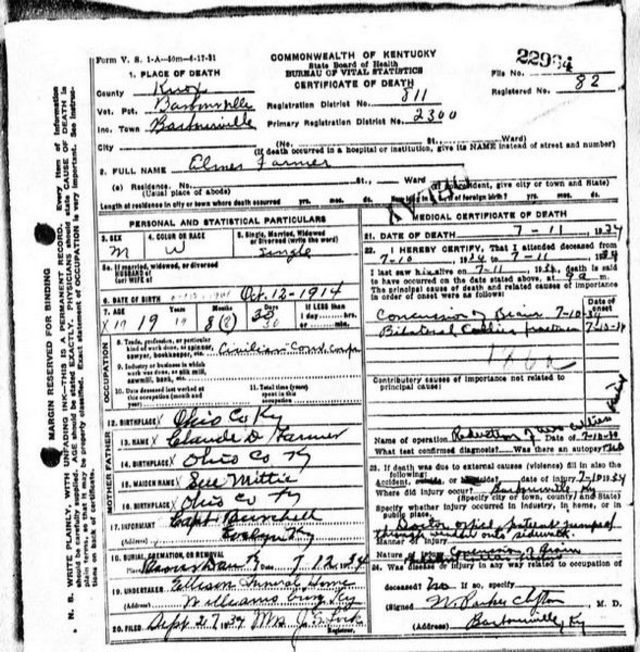 Form V. S. 1-A-50m-4-17-31
COMMONWEALTH OF KENTUCKY
State Board of Health
BUREAU OF VITAL STATISTICS
CERTIFICATE OF DEATH
22994
File No.
Registered No. 82
1. PLACE OF DEATH
County Knox
Vot. Pct. Barbourville
Inc. Town Barbourville
Registration District No. 811
Primary Registration District No. 2300
City (No. St., Ward)
(If death occurred in a hospital or institution, give its NAME instead of street and number)
2. FULL NAME Elmer Farmer
(a) Residence. No. St., Ward
(Usual place of abode) (If nonresident, give city or town and State)
Length of residence in city or town where death occurred yrs. mos. ds. How long in U.S., if of foreign birth? yrs. mos. ds.
PERSONAL AND STATISTICAL PARTICULARS
3. SEX M
4. COLOR OR RACE W
5. Single, Married, Widowed or Divorced (write the word) Single
5a. If married, widowed, or divorced
HUSBAND of
(or) WIFE of
6. DATE OF BIRTH Oct. 12-1914
7. AGE 19 8
If LESS than
1 day, hrs.
or min.
OCCUPATION
8. Trade, profession, or particular
kind of work done, as spinner,
sawyer, bookkeeper, etc. Civilian Cons. Corps
9. Industry or business in which
work was done, as silk mill,
sawmill, bank, etc.
10. Date deceased last worked at
this occupation (month and
year)
11. Total time (years)
spent in this
occupation
12. BIRTHPLACE Ohio Co Ky
FATHER
13. NAME Claude D Farmer
14. BIRTHPLACE Ohio Co Ky
MOTHER
15. MAIDEN NAME Sue Mittie
16. BIRTHPLACE Ohio Co Ky
17. INFORMANT Capt Burchell
(Address) Ky
18. BURIAL, CREMATION, OR REMOVAL
Place Date 7 12 1934
19. UNDERTAKER Ellison Funeral Home
(Address) Williamsburg, Ky
20. FILED Sept 27 1934 Mrs J.
Registrar.
MEDICAL CERTIFICATE OF DEATH
21. DATE OF DEATH 7-11 1934
22. I HEREBY CERTIFY, That I attended deceased from
7-10 1934 to 7-11 1934
I last saw him alive on 7-11 1934, death is said
to have occurred on the date stated above, at 9 a m.
The principal cause of death and related causes of importance
in order of onset were as follows:
Date of onset
Concussion of Brain 7-10-34
Bilateral Collies fracture 7-10-34
Contributory causes of importance not related to
principal cause:
Name of operation Reduction of two Collies Date of 7-10-34
What test confirmed diagnosis? Was there an autopsy? no
23. If death was due to external causes (violence) fill in also the
following:
Accident, suicide, or homicide? date of injury 7-10 1934
Where did injury occur? Barbourville, Ky
(Specify city or town, county and State)
Specify whether injury occurred in Industry, in home, or in
public place.
Doctor office, patient jumped
Manner of injury through window onto sidewalk
Nature of injury Concussion of Brain
24. Was disease or injury in any way related to occupation of
deceased? no If so, specify
(Signed) W. Parker Clifton M. D.
(Address) Barbourville, Ky
MARGIN RESERVED FOR BINDING
N. B. WRITE PLAINLY, WITH UNFADING INK—THIS IS A PERMANENT RECORD. Every item of Information
should be carefully supplied. AGE should be stated EXACTLY. PHYSICIANS should state CAUSE OF DEATH in
plain terms, so that it may be properly classified. Exact statement of OCCUPATION is very important. See instructions
on back of certificate.